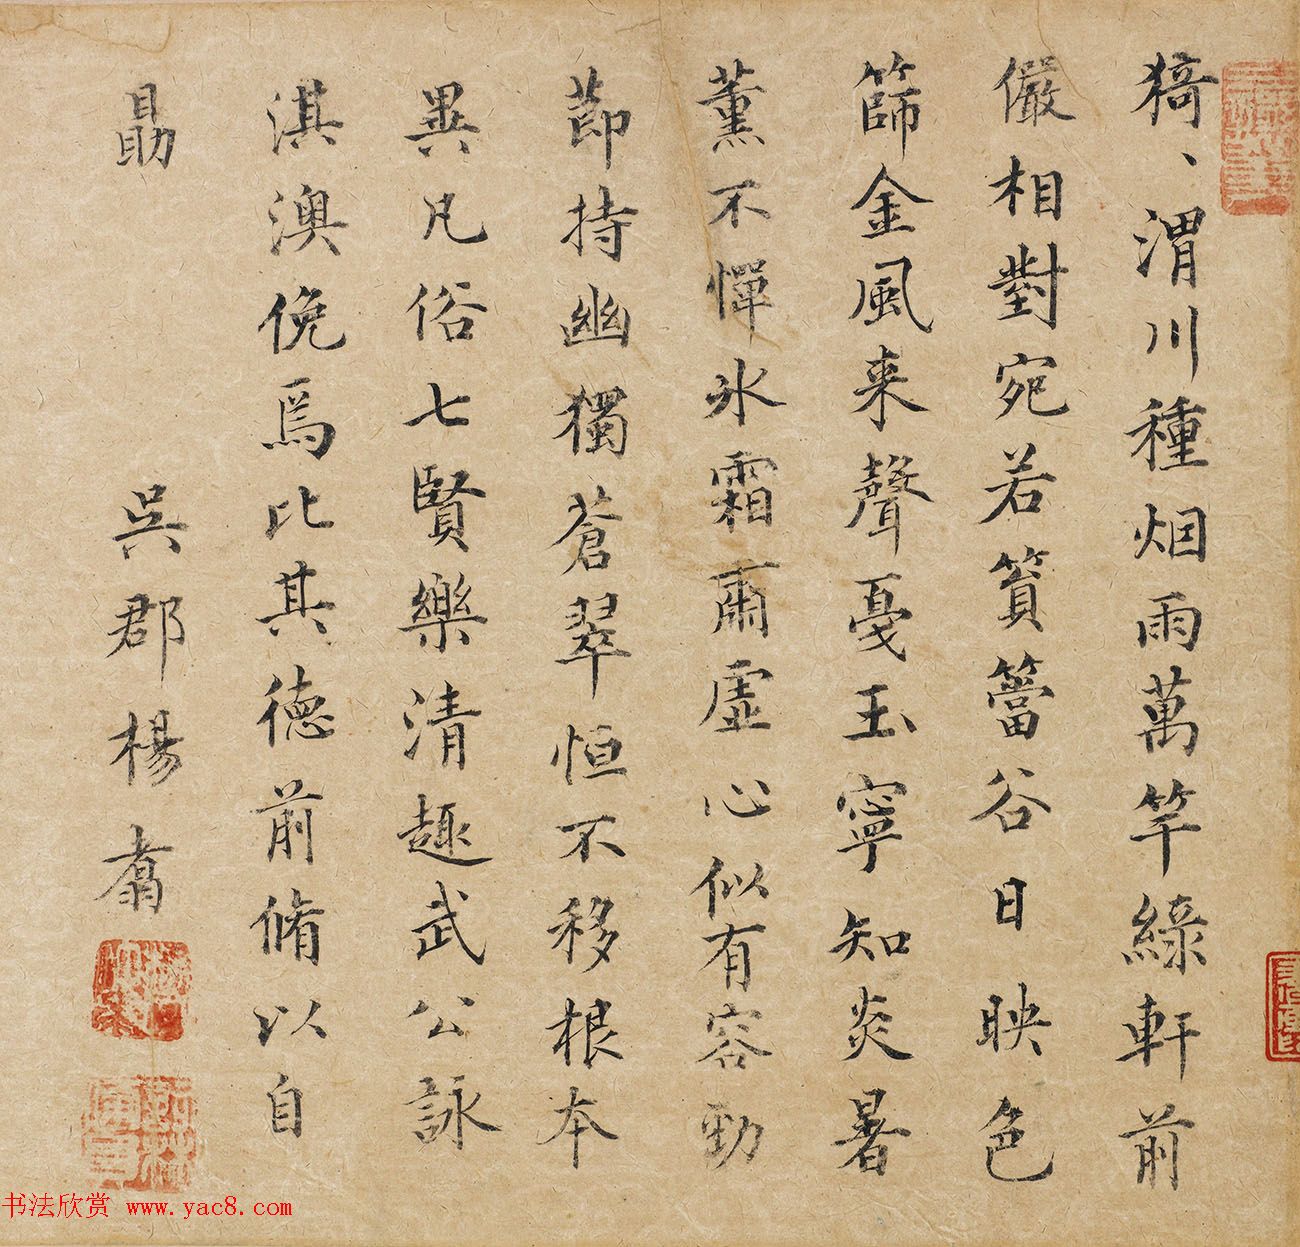 猗、渭川種烟雨萬竿綠軒前
儼相對宛若篔簹谷日映色
篩金風来聲戞玉寧知炎暑
薰不憚氷霜肅虛心似有容勁
莭持幽獨蒼翠恒不移根本
異凡俗七賢樂清趣武公詠
淇澳俛焉比其德前脩以自
勗
吳郡楊翥
书法欣赏 www.yac8.com